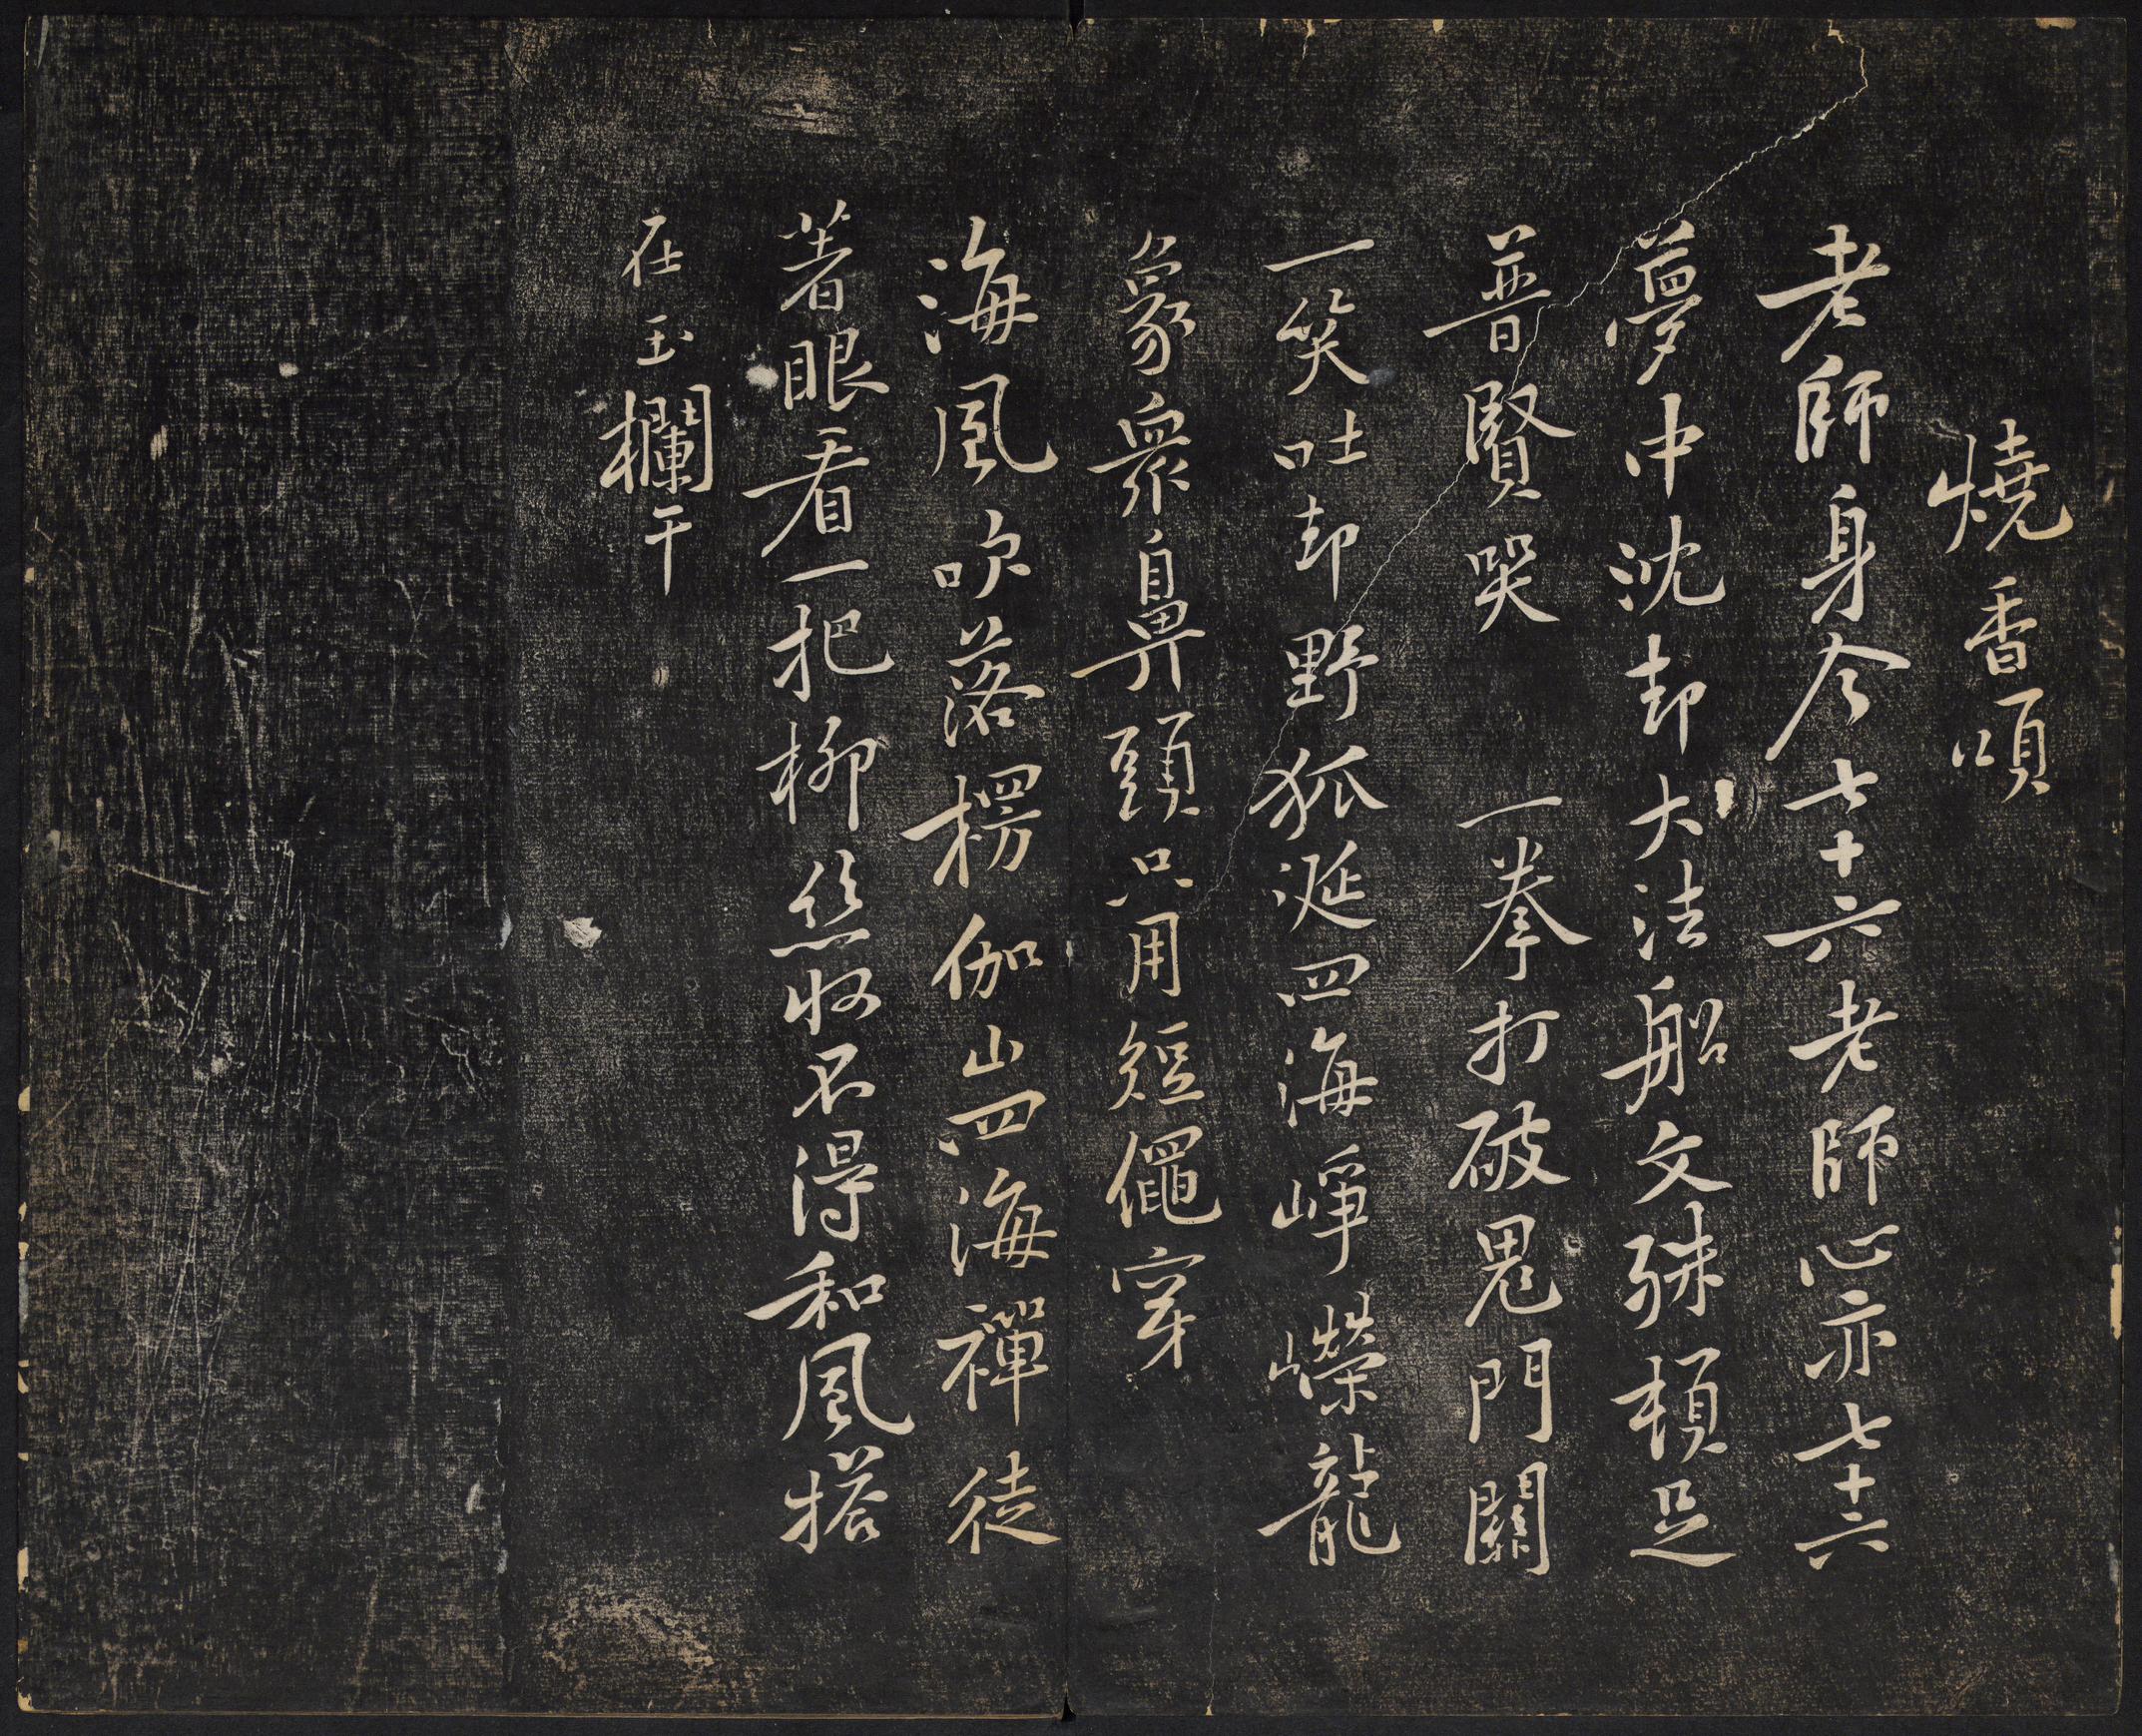 燒香頌
老師身今七十六老師心亦七十六
夢中沈却大法船文殊頓足
普賢哭　一拳打破鬼門關
一笑吐却野狐涎四海崢嶸龍
象衆鼻頭只用短繩穿
海風吹落楞伽山四海禪徒
著眼看一把柳絲收不得和風搭
在玉欄干